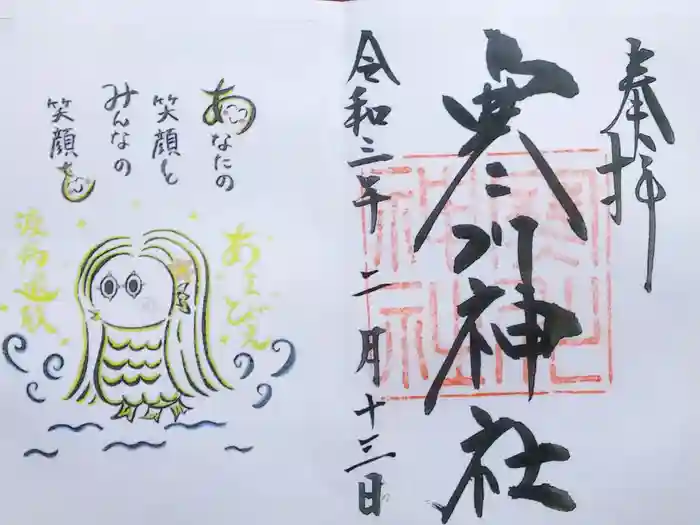 奉拝
寒川神社
令和三年 二月十三日
あなたの
笑顔と
みんなの
笑顔を
あまびえ
疫病退散